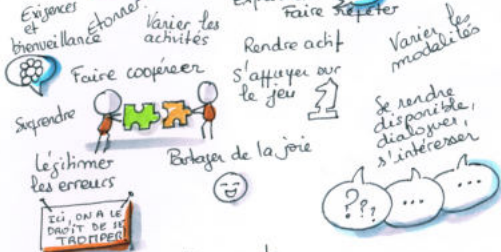 Exigences
et
bienveillance
étonner.
Varier les
activités
Faire répéter
Rendre actif
Varier les
modalités
Faire coopérer
S'appuyer sur
le jeu
Surprendre
Se rendre
disponible,
dialoguer,
s'intéresser
Légitimer
les erreurs
Partager de la joie
ICI, ON A LE
DROIT DE SE
TROMPER
???
...
...